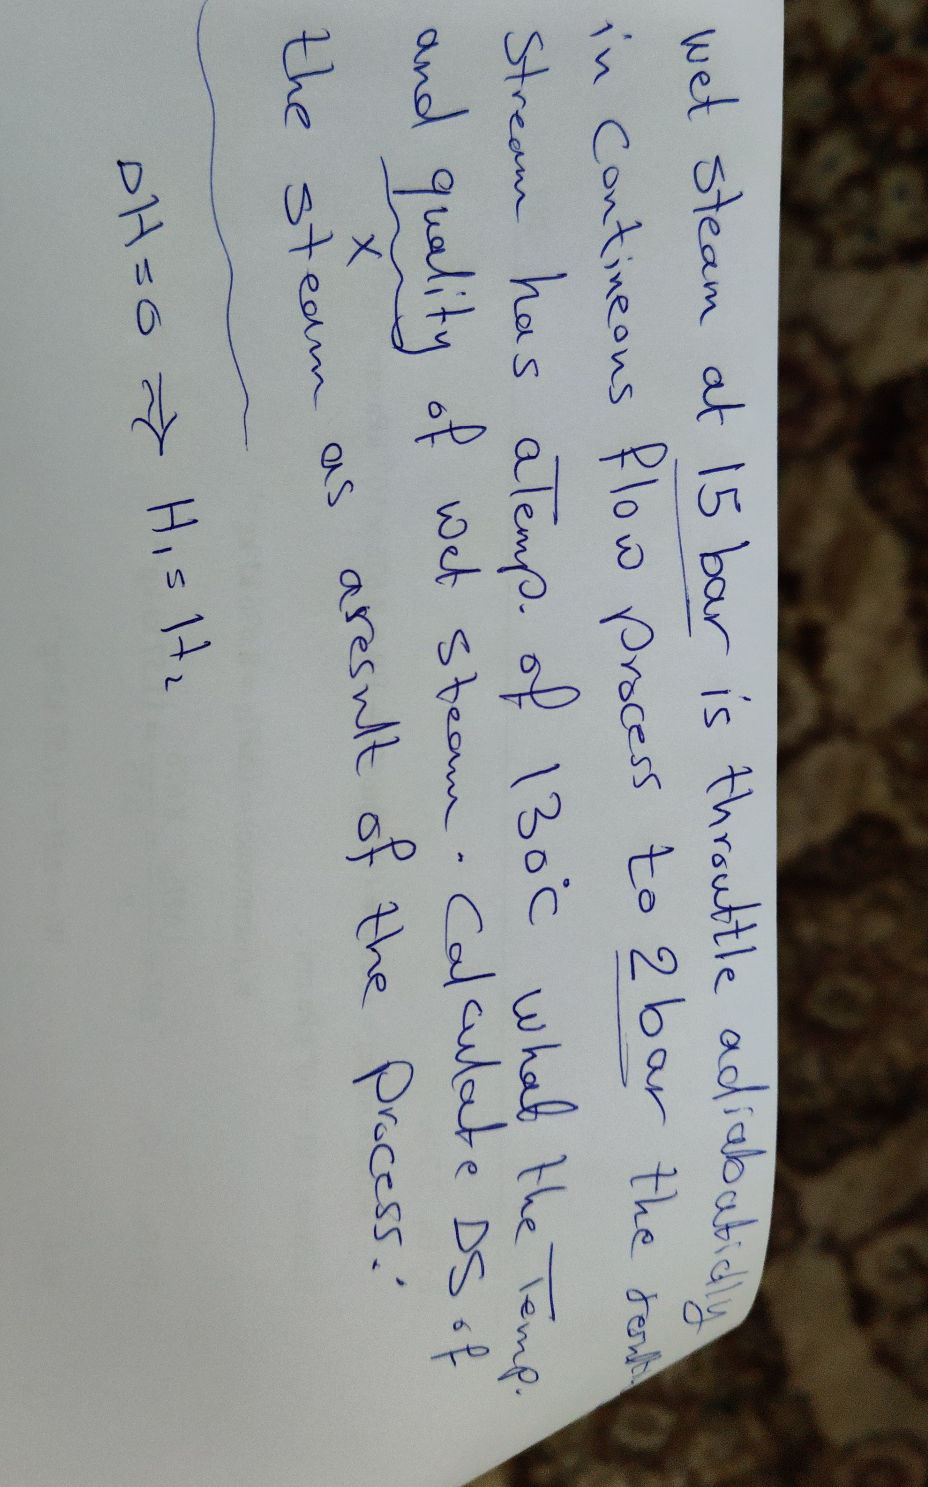 wet steam at 15 bar is throuttle adiabatidly
in Contineous flow process to 2 bar the result.
Stream has a Temp. of 130°C what the Temp.
and quality of wet steam. Calculate DS of
x
the steam as aresult of the process.
DH = 0 ⇒ H1 = H2